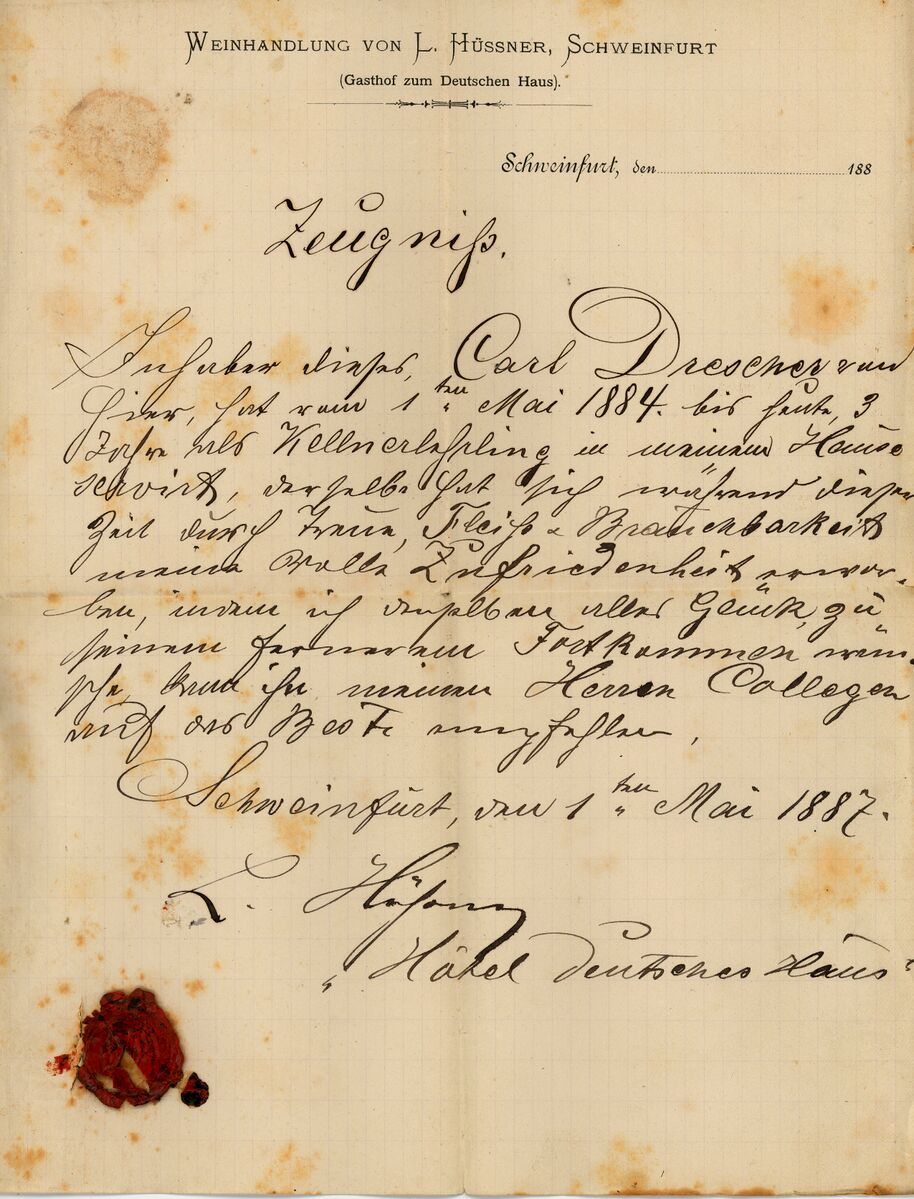 WEINHANDLUNG VON L. HÜSSNER, SCHWEINFURT
(Gasthof zum Deutschen Haus).
Schweinfurt, den 188
Zeugniß.
Inhaber dieses, Carl Drescher von
hier, hat vom 1ten Mai 1884. bis heute, 3
Jahre als Kellnerlehrling in meinem Hause
servirt, derselbe hat sich während dieser
Zeit durch Treue, Fleiß & Brauchbarkeit
meine volle Zufriedenheit erwor-
ben, indem ich demselben alles Glück, zu
seinem ferneren Fortkommen wün-
sche, kann ihn meinen Herren Collegen
auf das Beste empfehlen.
Schweinfurt, den 1ten Mai 1887.
L. Hüßner
„Hôtel Deutsches Haus"